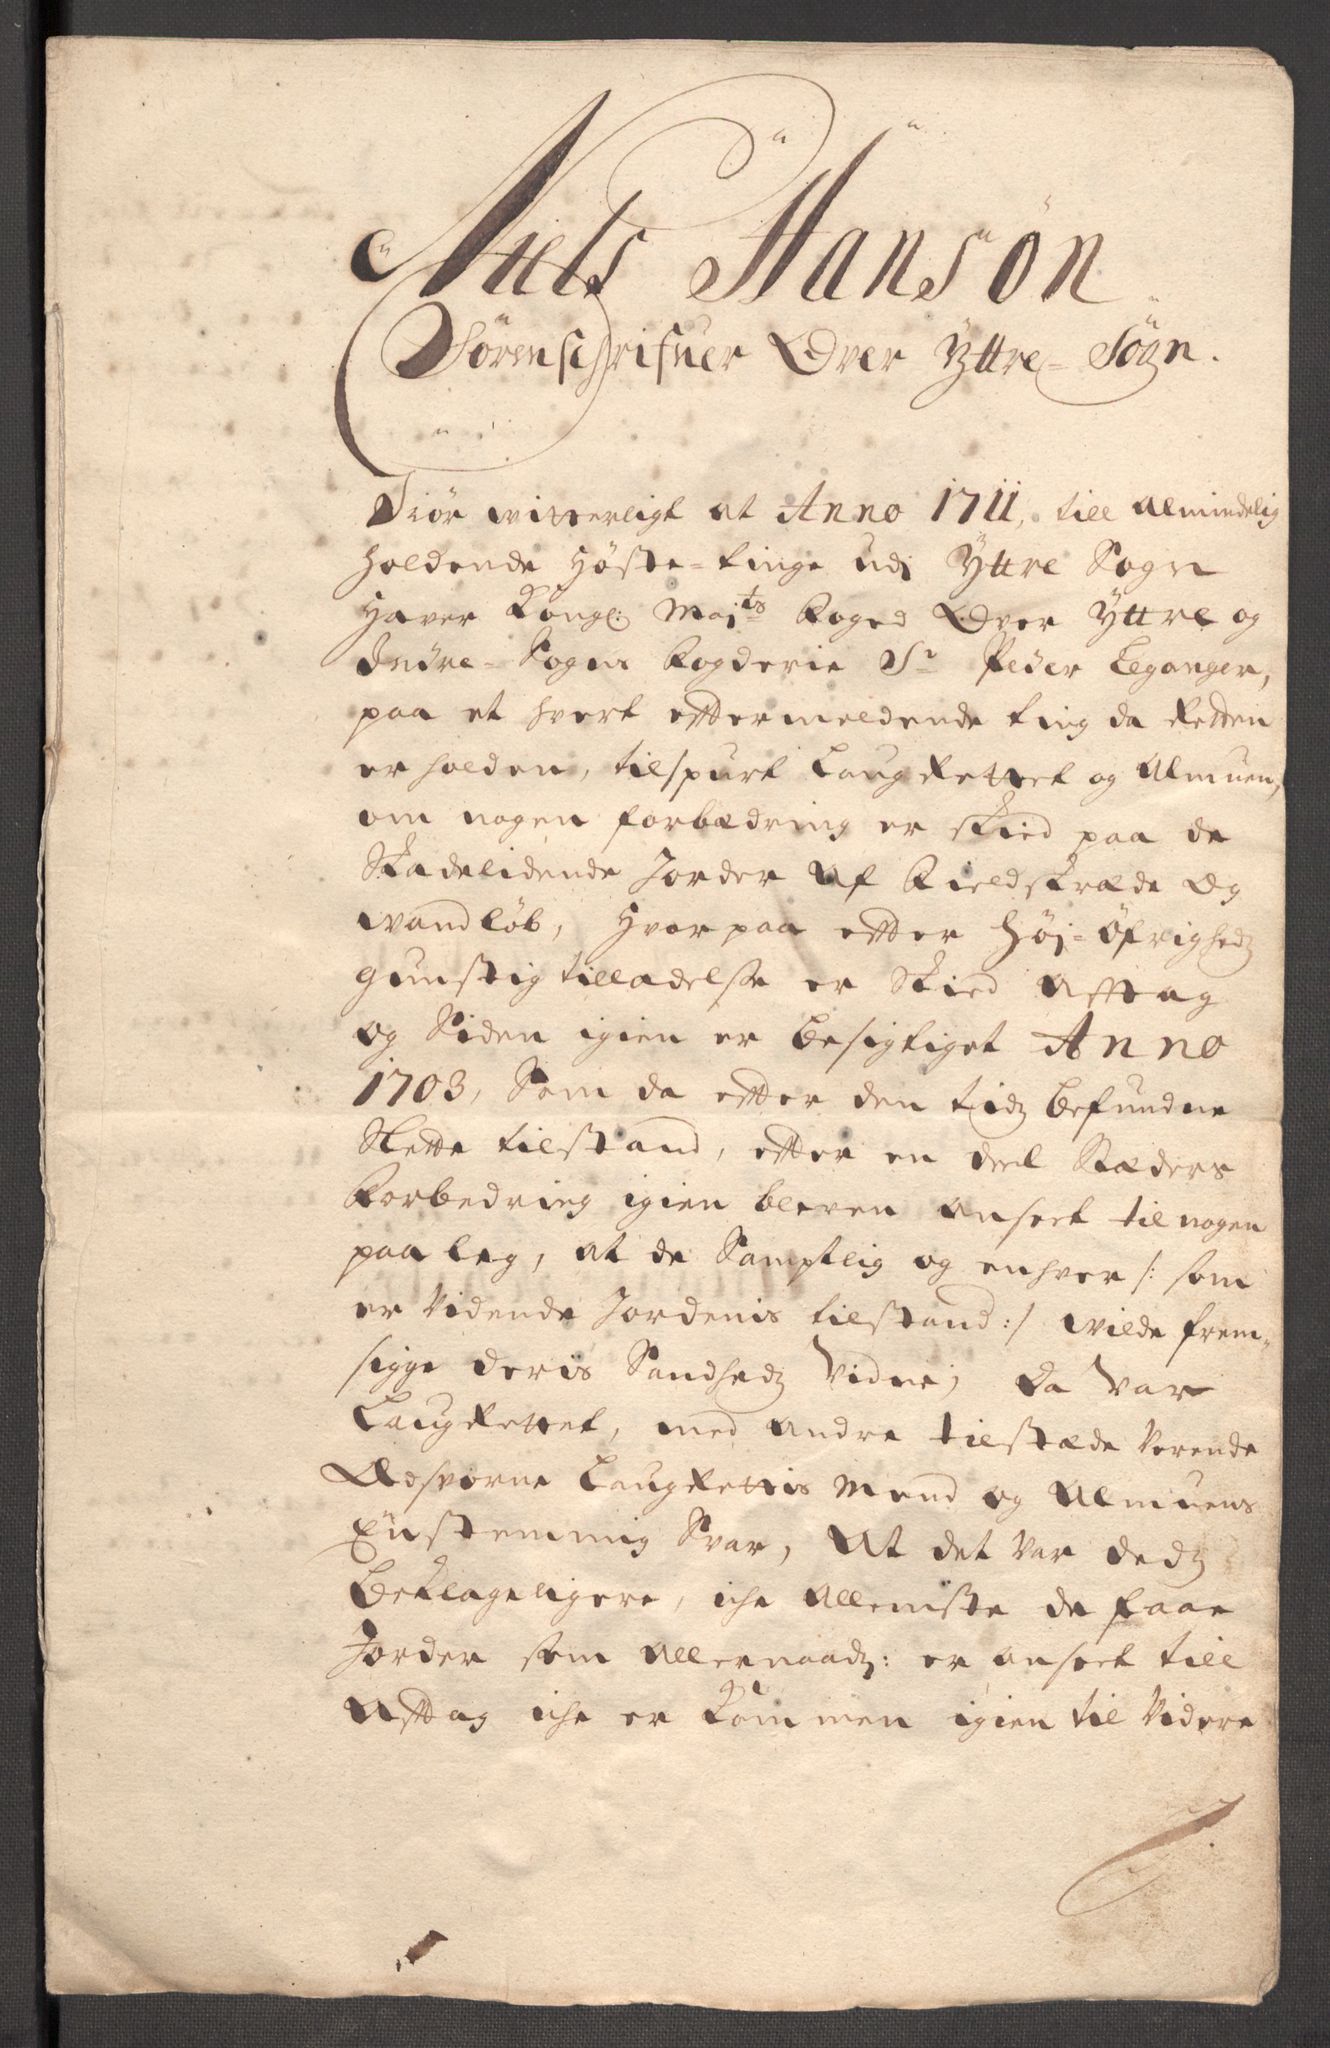 Niels Hansøn
Sörenschrifuer Over Yttre= Sögn.
Giør witterligt at Anno 1711, till almindelig
holdende Høste=tinge udi Yttre Sogn
Haver Kongl: Maj:ts Foged Over Yttre og
Indre=Sogns Fogderie Sr Peder Leganger,
paa et hvert efftermeldende ting da Retten
er holden, tilspurt LaugRettet og Almuen,
om nogen forbædring er skied paa de
Skadelidende Jorder af Fieldskræde Og
wandløb, Hvorpaa effter Høj=Øfrighedz
gunstig tilladelse er Skied Afftag
og Siden igien er besigtiget Anno
1703, Som da effter den tidz befundne
Slette tilstand, effter en deel Stæders
Forbedring igien bleven anseet til nogen
paaleg, at de Samptlig og enhver /: som
er vidende Jordenis tilstand :/ wilde frem=
sigge deris Sandhedz Vidne; Da Var
LaugRettet, med andre tilstæde Verende
Edsvorne LaugRettis Mend og Almuens
Eenstemmig Svar, At det Var dedz
beklageligere, iche allerniste de faae
Jorder som allernaadz: er anseet till
Afftag iche er kommen igien til Videre